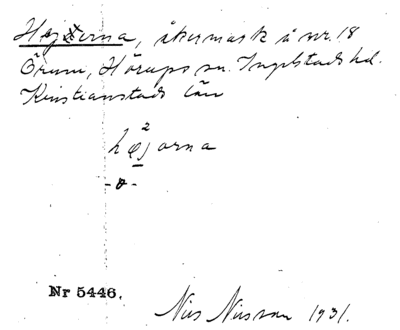 Hejerna, åkermark å nr. 18
Örum, Hörups sn. Ingelstads hd.
Kristianstads län
2
hęjorna
-o-
Nr 5446.
Nils Nilsson 1931.